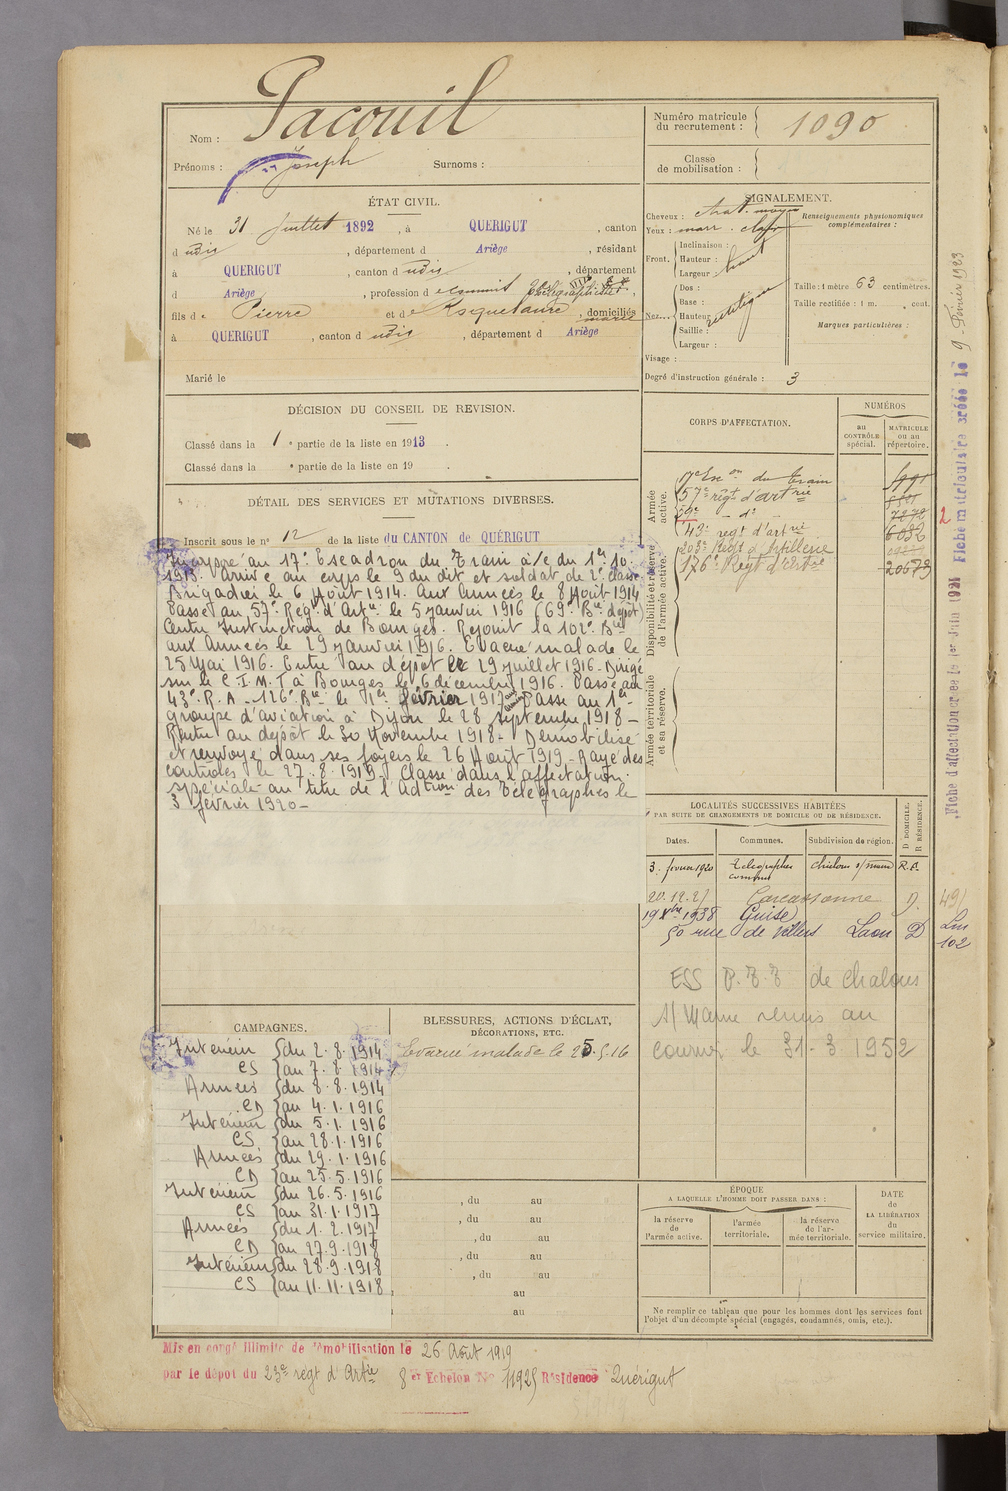 Nom : Pacouil
Prénoms : Joseph Surnoms :
Numéro matricule du recrutement : 1090
Classe de mobilisation :
ÉTAT CIVIL.
Né le 31 juillet 1892, à QUERIGUT, canton
d udis, département d Ariège, résidant
à QUERIGUT, canton d udis, département
d Ariège, profession d
fils de Pierre et de, domiciliés
à QUERIGUT, canton d udis, département d Ariège
Marié le
SIGNALEMENT.
Cheveux : chat. moyen
Yeux : marr. clair
Renseignements physionomiques complémentaires :
Front. Inclinaison :
Hauteur :
Largeur : haut
Nez... Dos : rectiligne
Base :
Hauteur :
Saillie :
Largeur :
Taille : 1 mètre 63 centimètres.
Taille rectifiée : 1 m. cent.
Marques particulières :
Visage :
Degré d'instruction générale : 3
DÉCISION DU CONSEIL DE REVISION.
Classé dans la 1 e partie de la liste en 1913.
Classé dans la e partie de la liste en 19 .
DÉTAIL DES SERVICES ET MUTATIONS DIVERSES.
Inscrit sous le n° 12 de la liste du CANTON de QUÉRIGUT
Incorporé au 17e Escadron du Train à/c du 1er 10.
1913. Arrivé au corps le 9 du dit et soldat de 2e classe
Brigadier le 6 Août 1914. Aux Armées le 8 Août 1914
Passé au 57e Régt d'Artie le 5 janvier 1916 (69e Bie dépôt)
Centre Instruction de Bourges. Rejoint la 102e Bie
aux Armées le 29 janvier 1916. Evacué malade le
25 Mai 1916. Entré au dépôt le 29 juillet 1916. Dirigé
sur le C.I.M.T à Bourges le 6 décembre 1916. Passé au
43e R.A. 126e Bie le 1er février 1917 aux armées Passé au 1er
groupe d'aviation à Dijon le 28 septembre 1918 –
Rentré au dépôt le 30 Novembre 1918 – Démobilisé
et renvoyé dans ses foyers le 26 Août 1919 – Rayé des
contrôles le 27.8.1919. Classé dans l'affectation
spéciale au titre de l'Adtion des Télégraphes le
3 février 1920 –
CORPS D'AFFECTATION.
NUMÉROS
au CONTRÔLE spécial.
MATRICULE ou au répertoire.
Armée active.
Disponibilité et réserve de l'armée active.
Armée territoriale et sa réserve.
17e Escon du train
57e régt d'artrie
– do – 7272
43e regt d'artrie 6032
203e Regt d'Artillerie
126e Regt d'Artie 20673
LOCALITÉS SUCCESSIVES HABITÉES
PAR SUITE DE CHANGEMENTS DE DOMICILE OU DE RÉSIDENCE.
Dates. Communes. Subdivision de région. D DOMICILE. R RÉSIDENCE.
3. février 1920 télégraphes commis chalons s/marne R.A.
20.12.21 Carcassonne D. 49
19 Xbre 1938 Guise
50 rue de Villers Laon D Lm 102
ESS P.T.T de Chalons
s/ Marne remis au
courrier le 31-3 1952
CAMPAGNES.
Intérieur du 2.8.1914
CS au 7.8.1914
Armées du 8.8.1914
CD au 4.1.1916
Intérieur du 5.1.1916
CS au 28.1.1916
Armées du 29.1.1916
CD au 25.5.1916
Intérieur du 26.5.1916
CS au 31.1.1917
Armées du 1.2.1917
CD au 27.9.1918
Intérieur du 28.9.1918
CS au 11.11.1918
BLESSURES, ACTIONS D'ÉCLAT,
DÉCORATIONS, ETC.
Evacué malade le 25.5.16
, du au
, du au
, du au
, du au
, du au
au
au
ÉPOQUE
A LAQUELLE L'HOMME DOIT PASSER DANS :
la réserve de l'armée active.
l'armée territoriale.
la réserve de l'armée territoriale.
DATE de LA LIBÉRATION du service militaire.
Ne remplir ce tableau que pour les hommes dont les services font
l'objet d'un décompte spécial (engagés, condamnés, omis, etc.).
Mis en congé illimité de démobilisation le 26 Août 1919
par le dépôt du 23e régt d'Artie 8 er Echelon No 11925 Résidence Quérigut
Fiche d'affectation créée le 1er Juin 1921 Fiche matriculaire créée le 9 Février 1923
2